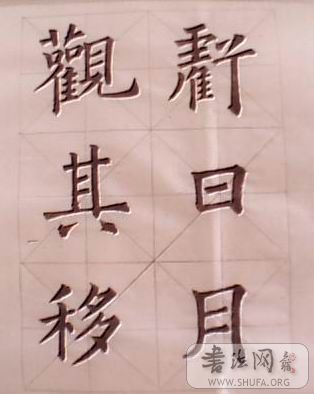 虧日月
觀其移
書法网
WWW.SHUFA.ORG